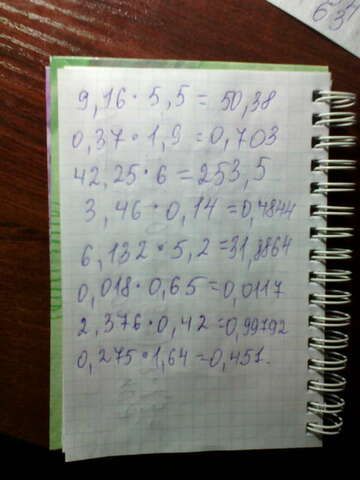 9,16 · 5,5 = 50,38
0,37 · 1,9 = 0,703
42,25 · 6 = 253,5
3,46 · 0,14 = 0,4844
6,132 · 5,2 = 31,8864
0,018 · 0,65 = 0,0117
2,376 · 0,42 = 0,99792
0,275 · 1,64 = 0,451.